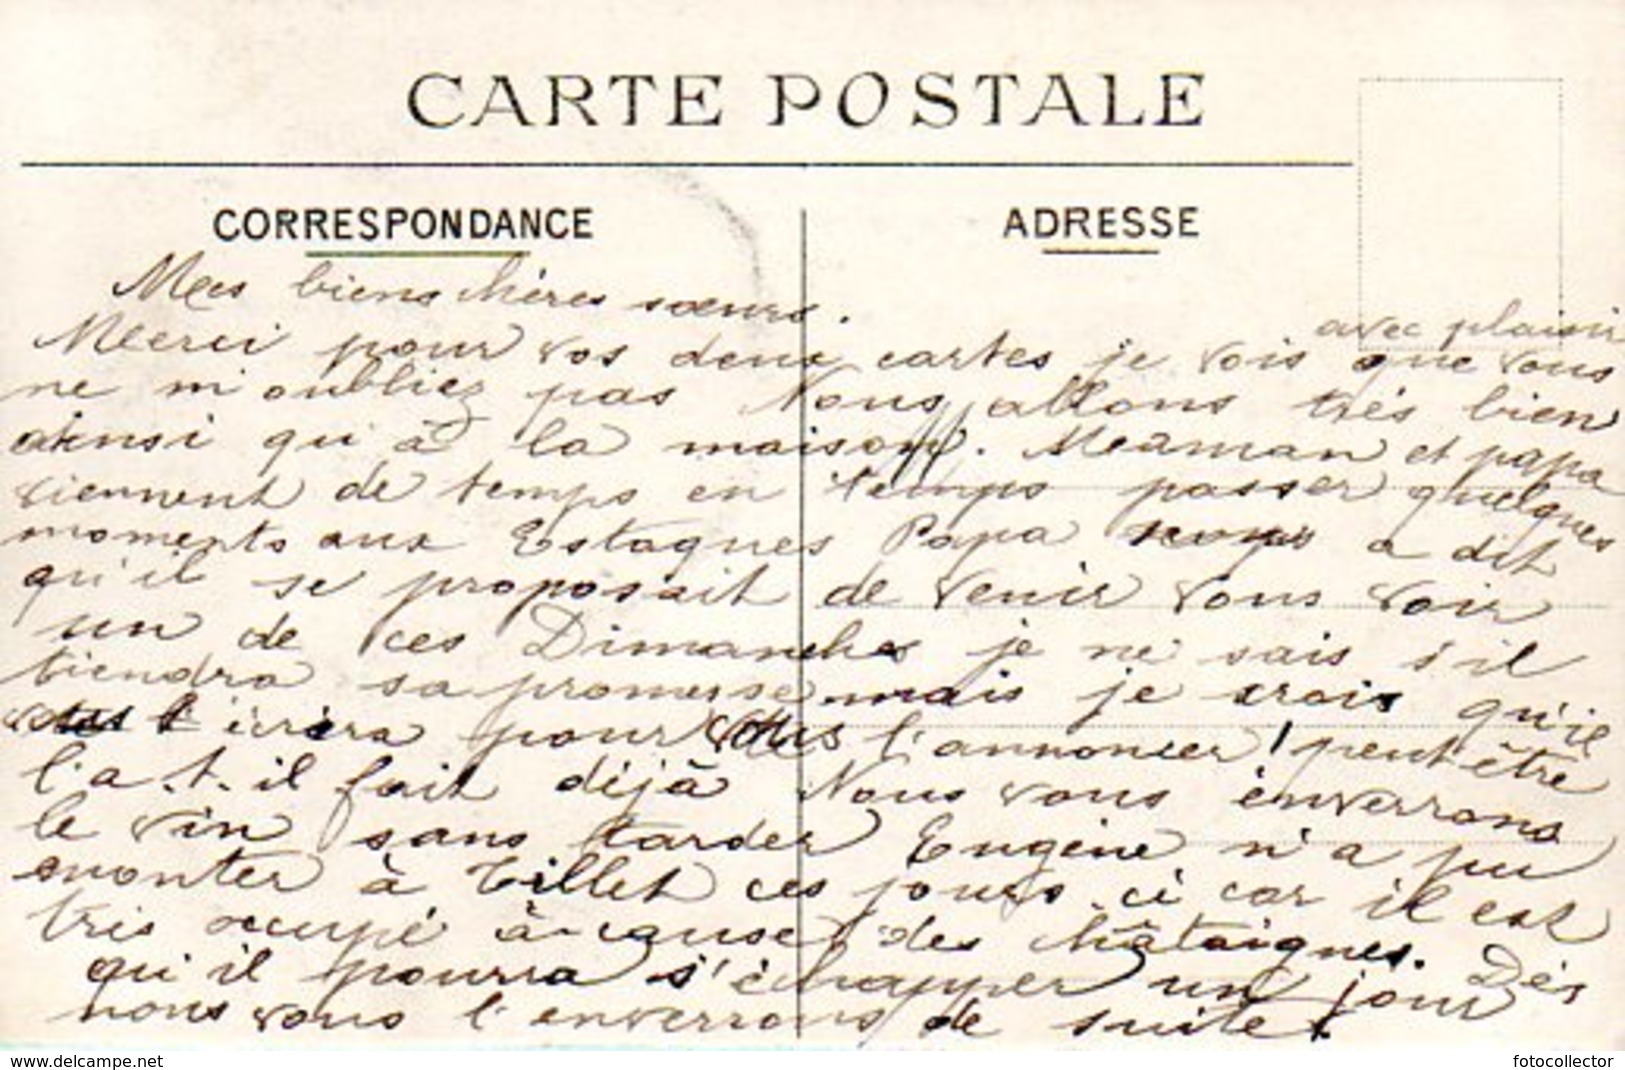 CARTE POSTALE
CORRESPONDANCE
ADRESSE
Mes biens chères sœurs.
avec plaisir
Merci pour vos deux cartes je vois que vous
ne m'oubliez pas Nous allons très bien
ainsi qu'à la maison. Maman et papa
viennent de temps en temps passer quelques
moments aux Estagnes Papa a dit
qu'il se proposait de venir vous voir
un de ces Dimanches je ne sais s'il
tiendra sa promesse mais je crois qu'il
écrira pour vous l'annoncer! peut être
l'a.t.il fait déjà Nous vous enverrons
le vin sans tarder Eugène n'a pu
monter à Tillet ces jours ci car il est
très occupé à cause des châtaignes. Dès
qu'il pourra s'échapper un jour
nous vous l'enverrons de suite.
www.delcampe.net
fotocollector